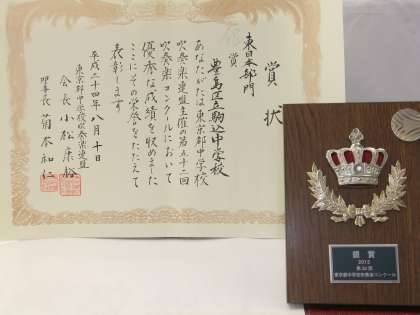 賞状
東日本部門
賞
豊島区立駒込中学校
あなたがたは東京都中学校
吹奏楽連盟主催の第五十二回
吹奏楽コンクールにおいて
優秀な成績を収めました
ここにその栄誉をたたえて
表彰します
平成二十四年八月十日
東京都中学校吹奏楽連盟
会長 小松康裕
理事長 菊本和仁
銀賞
2012
第52回
東京都中学校吹奏楽コンクール